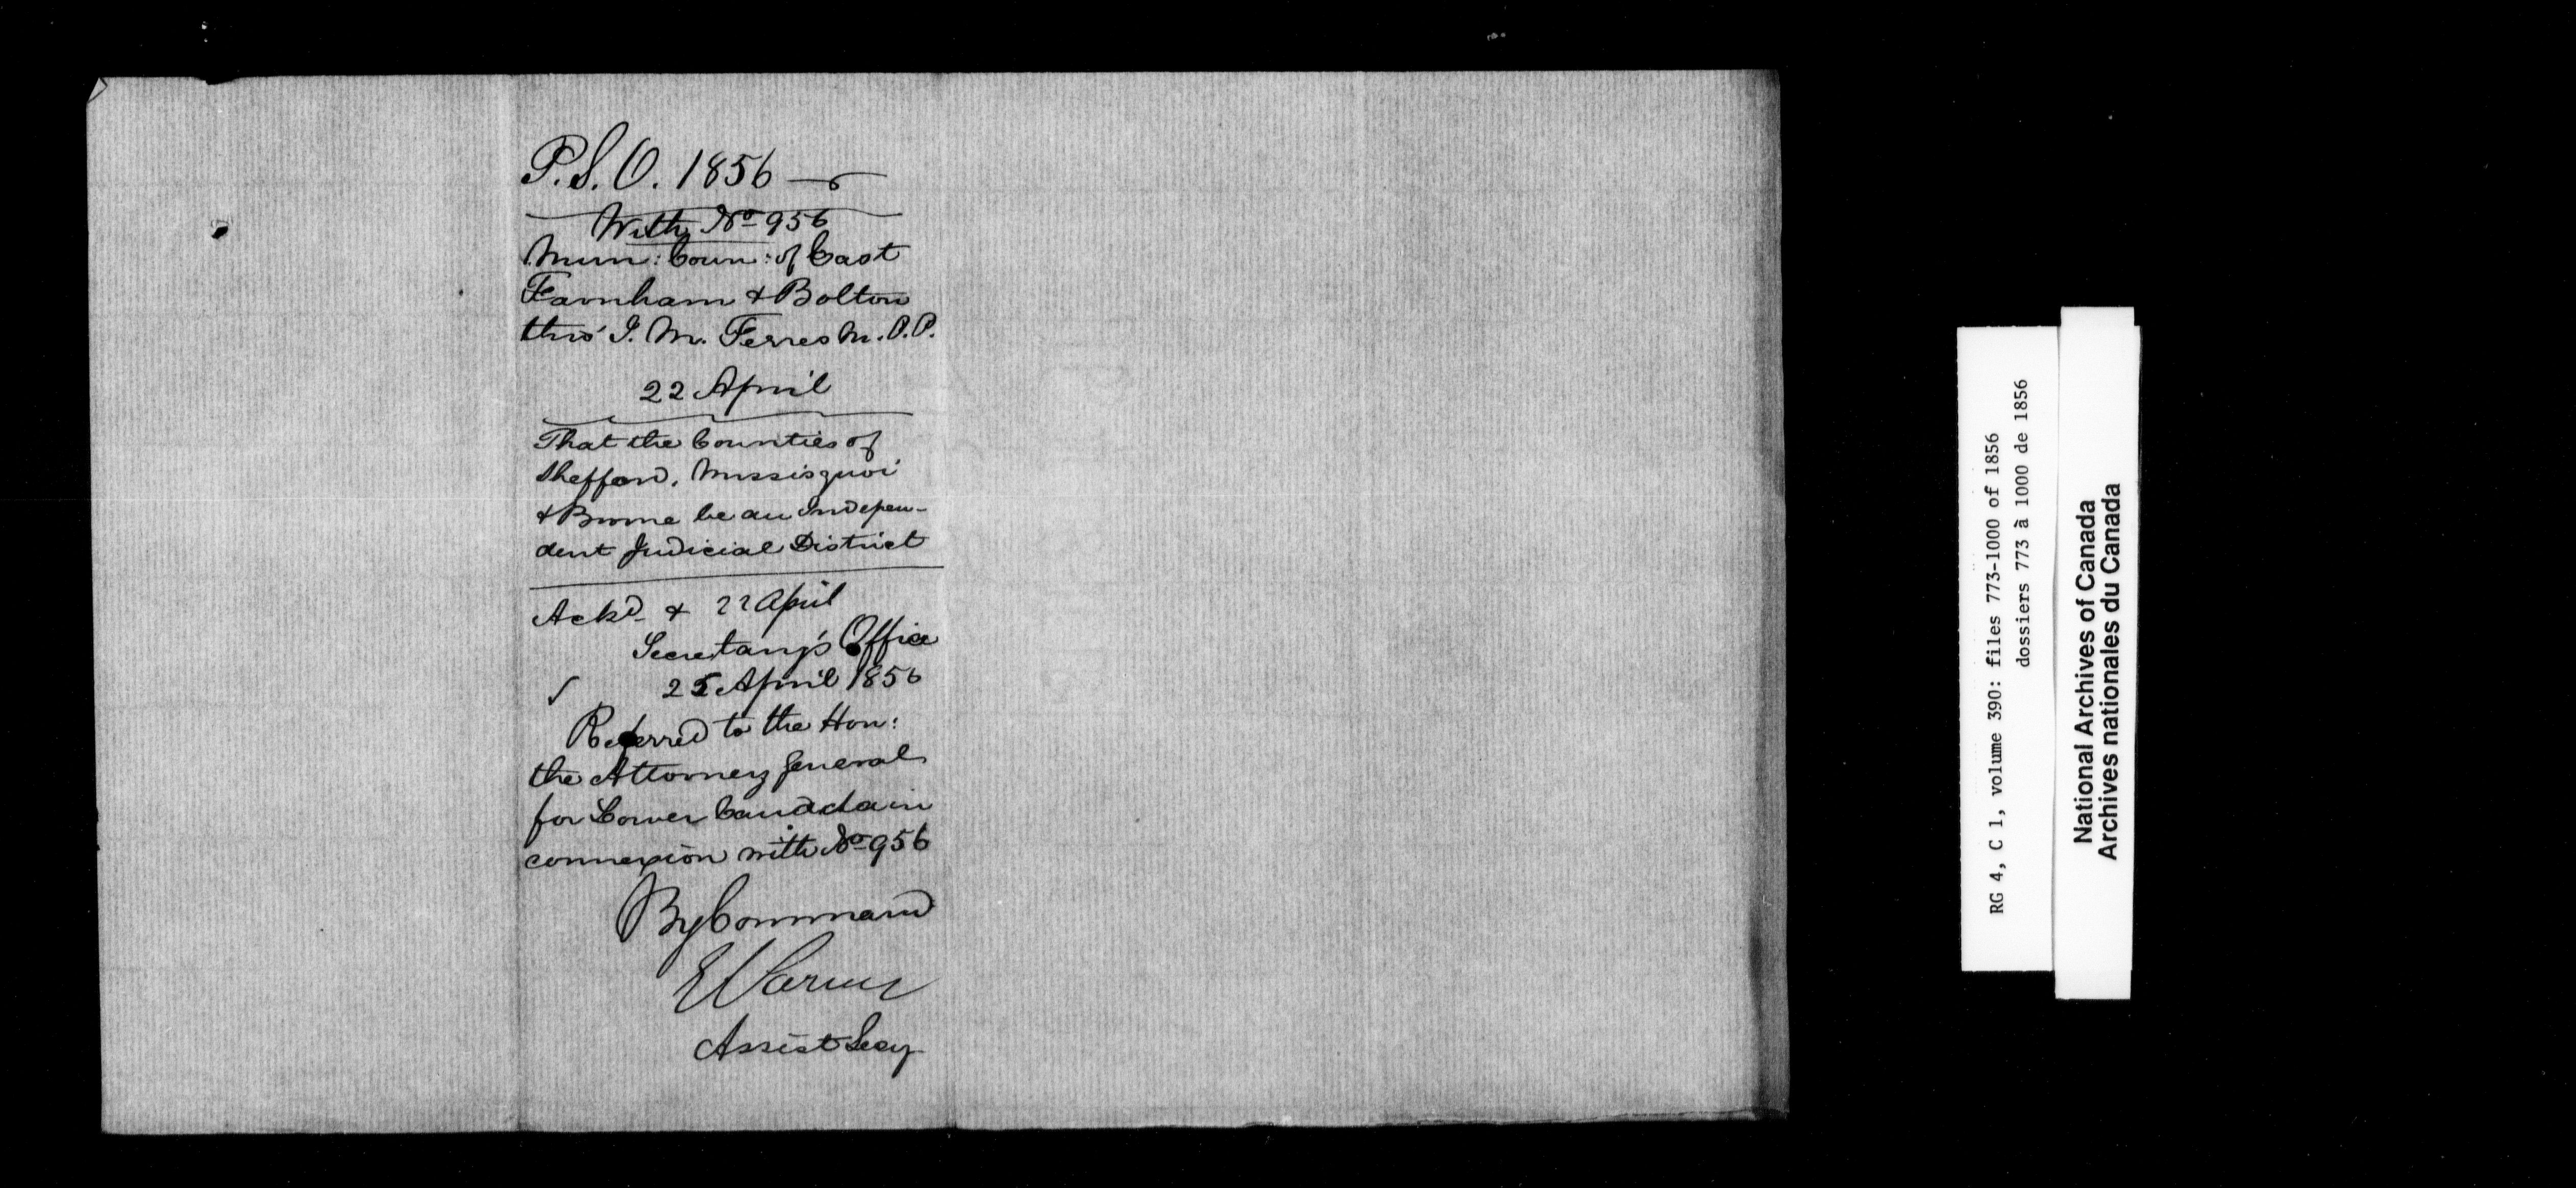 P.S.O. 1856
With No 956
Mun: Coun: of East
Farnham & Bolton
thro' J. M. Ferres M.P.P.
22 April
That the Counties of
Shefford, Missisquoi
& Brome be an Indepen-
dent Judicial District
Ackd & 22 April
Secretary's Office
25 April 1856
Referred to the Hon:
the Attorney General
for Lower Canada in
connexion with No 956
By Command
Assist Secy
RG 4, C 1, volume 390: files 773-1000 of 1856
dossiers 773 à 1000 de 1856
National Archives of Canada
Archives nationales du Canada